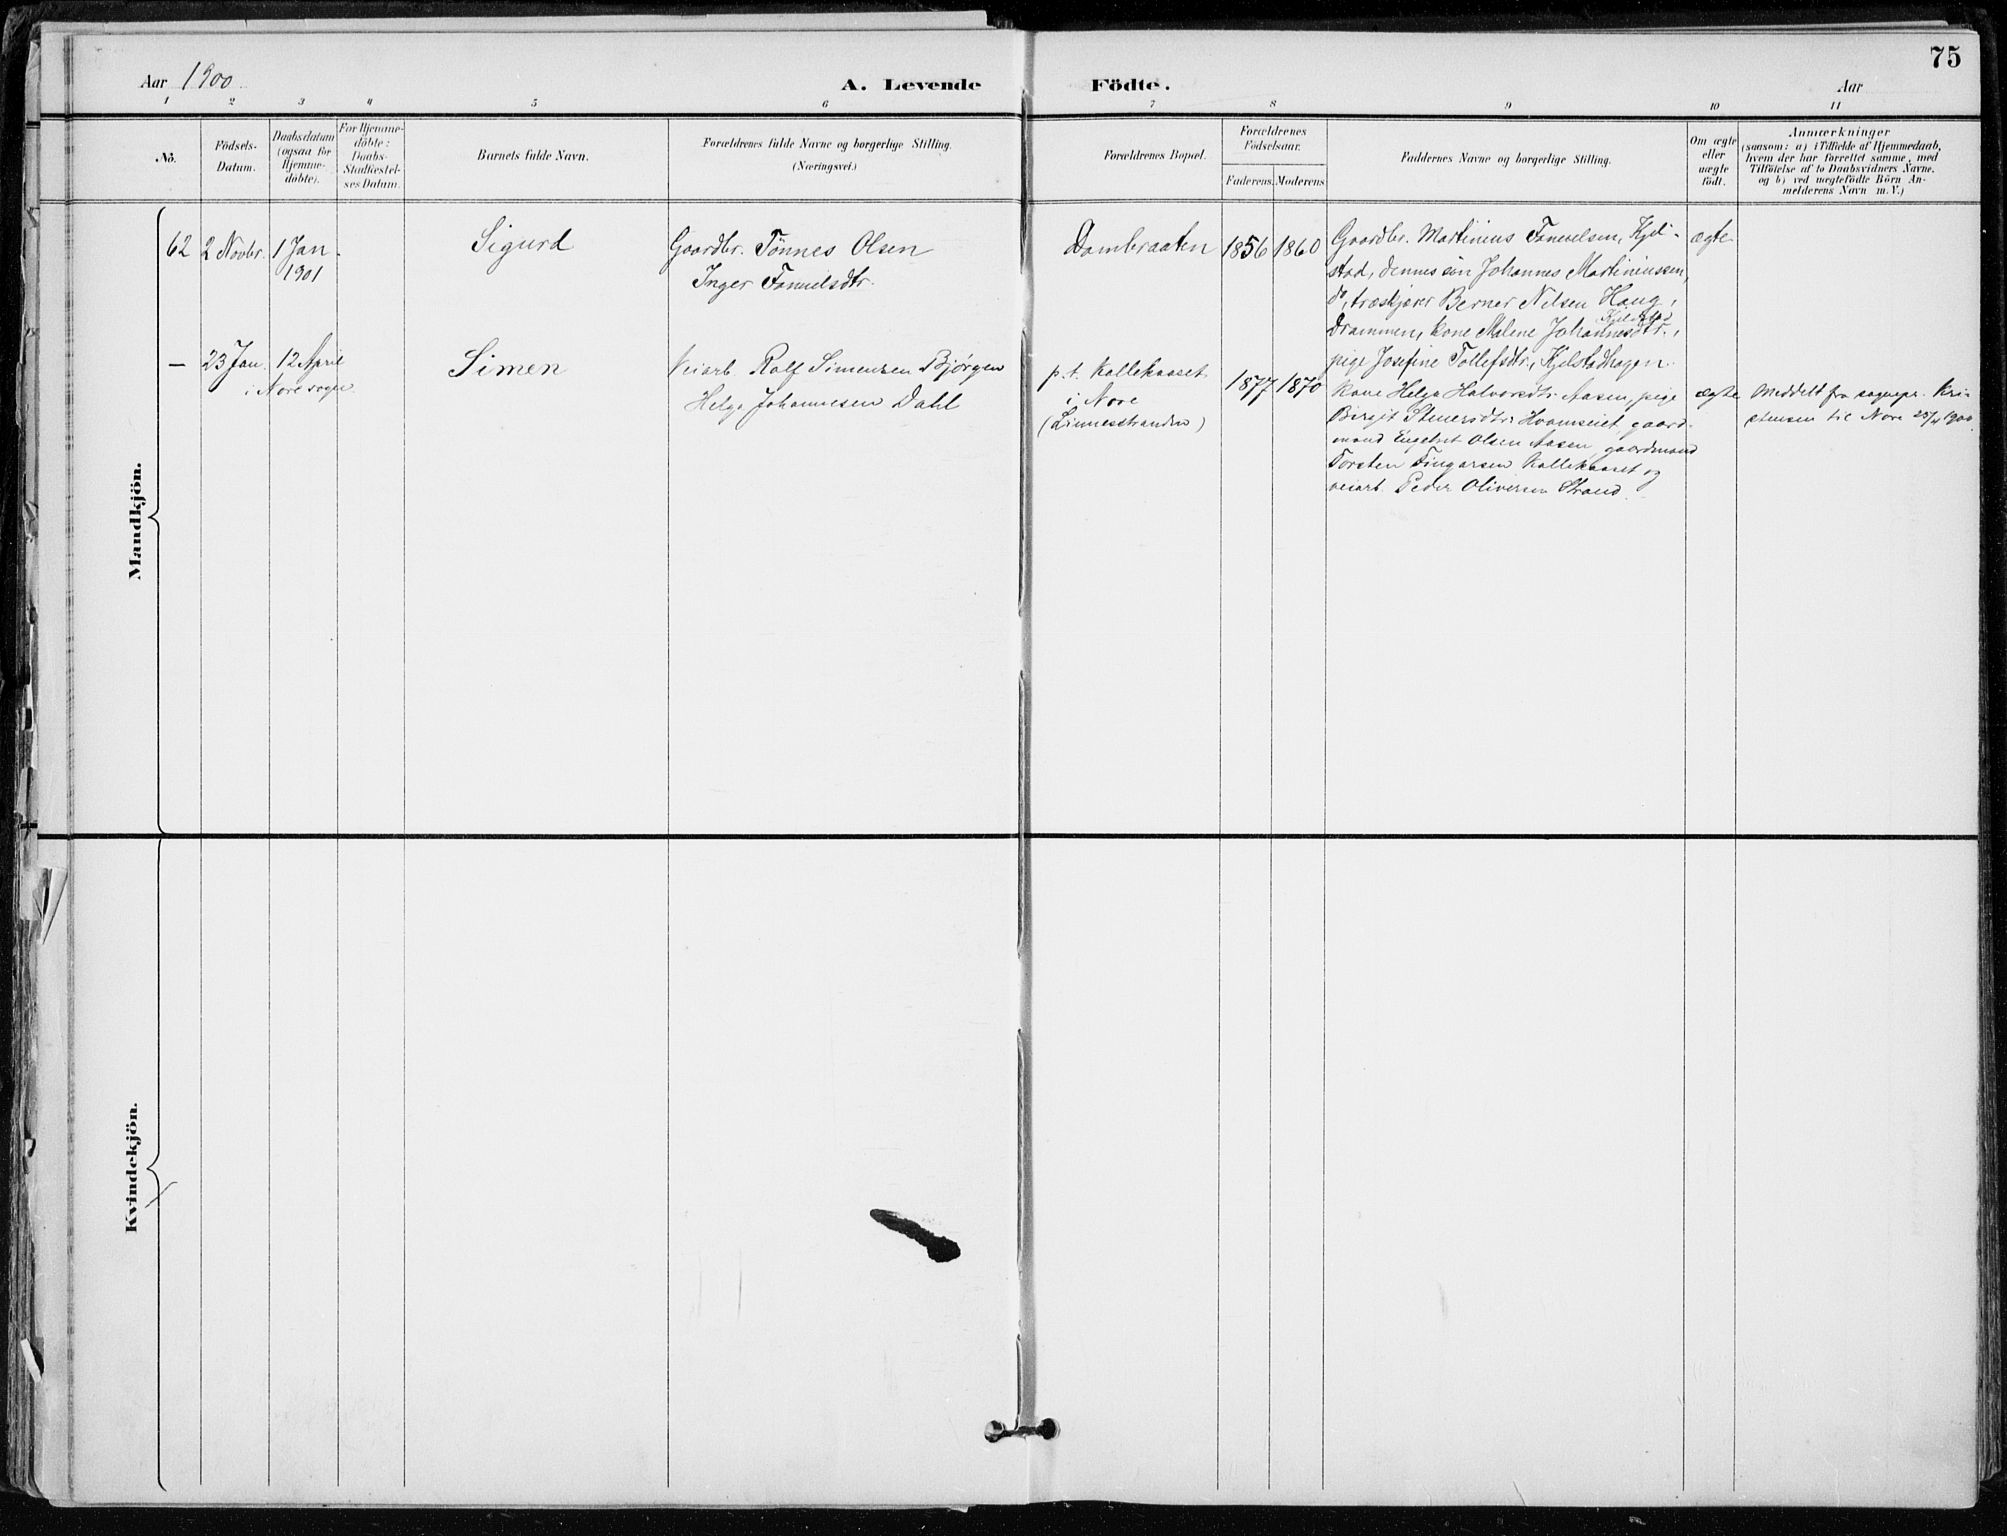 75
Aar 1900. A. Levende Födte. Aar
1 2 3 4 5 6 7 8 9 10 11
No.
Födsels-
Datum.
Daabsdatum
(ogsaa for
Hjemme-
döbte).
For Hjemme-
döbte:
Daabs-
Stadfæstel-
ses Datum.
Barnets fulde Navn.
Forældrenes fulde Navne og borgerlige Stilling.
(Næringsvei.)
Forældrenes Bopæl.
Forældrenes
Födselsaar.
Faderens. Moderens
Faddernes Navne og borgerlige Stilling.
Om ægte
eller
uægte
födt.
Anmærkninger
(saasom: a) i Tilfælde af Hjemmedaab,
hvem der har forrettet samme, med
Tilföielse af to Daabsvidners Navne,
og b) ved uægtefödte Börn An-
melderens Navn m. V.)
Mandkjön.
62 2 Novbr. 1 Jan.
1901
Sigurd
Gaardbr. Tönnes Olsen
Inger Fanuelsdtr.
Dambraaten
1856 1860
Gaardbr. Martinius Fanuelsen, Kjel-
stad, dennes sön Johannes Martiniussen,
do, træskjærer Berner Nilsen Haug,
Drammen, kone Malene Johannesdtr. Kjelstad,
pige Josefine Tollefsdtr., Kjelstadhagen.
ægte
— 23 Jan. 12 April
i Nore sogn
Simen
Veiarb. Rolf Simensen Bjørgen
Helga Johannesen Dahl
p. t. Kallekaaset
i Nore
(Linnesstranden)
1877 1870
Kone Helga Halvorsdtr Aasen, pige
Birgit Stenersdtr. Hvamseiet, gaard-
mand Engebret Olsen Aasen, gaardmand
Torsten Fingarsen Kallekaaset og
veiarb. Peder Oliversen Strand.
ægte
Meddelt fra sognepr. Kri-
stensen til Nore 25/4 1900.
Kvindekjön.